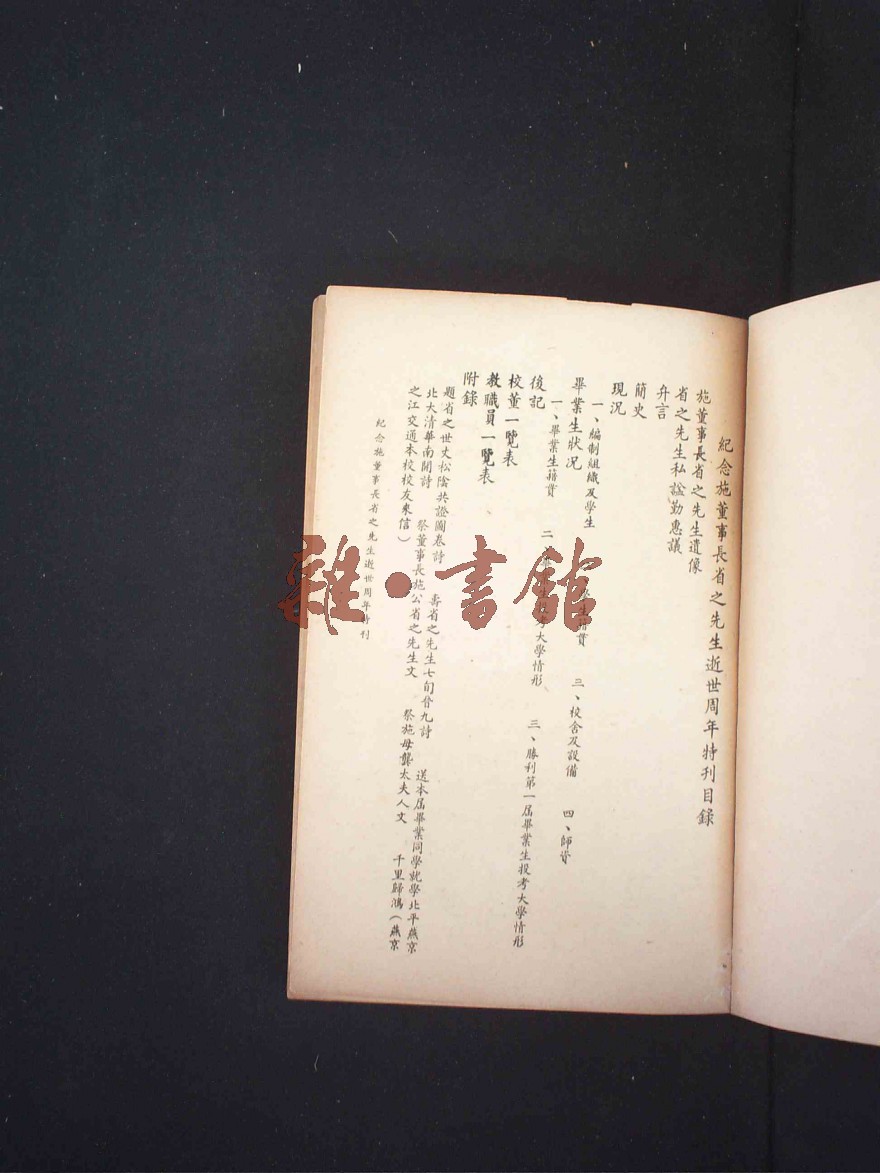 紀念施董事長省之先生逝世周年特刊目錄
施董事長省之先生遺像
省之先生私諡勤惠議
弁言
簡史
現況
一、編制組織及學生 生籍貫 三、校舍及設備 四、師資
畢業生狀況
一、畢業生籍貫 二、 生投考大學情形 三、勝利第一屆畢業生投考大學情形
後記
校董一覽表
教職員一覽表
附錄
題省之世丈松陰共證圖卷詩 壽省之先生七旬晉九詩 送本屆畢業同學就學北平燕京
北大清華南開詩 祭董事長施公省之先生文 祭施母龔太夫人文 千里歸鴻(燕京
之江交通本校校友來信)
紀念施董事長省之先生逝世周年特刊
雜·書館